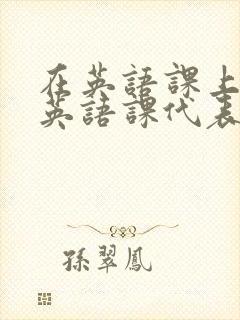 在英語課上
英語課代表
孫翠鳳